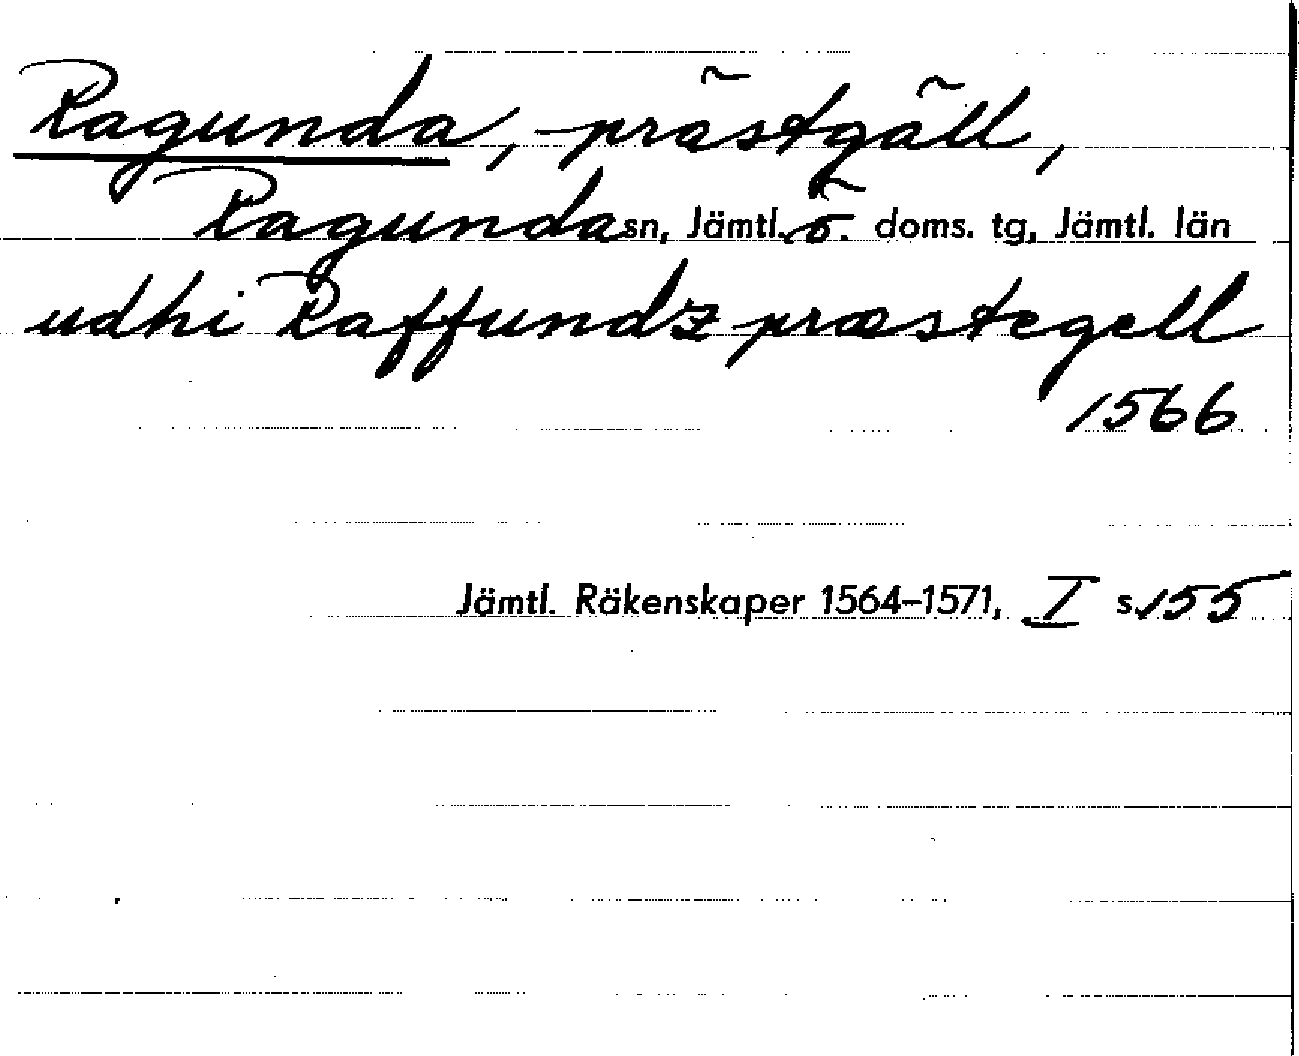 Ragunda, prästgäll,
Ragunda sn, Jämtl. ö. doms. tg, Jämtl. län
udhi Raffundz præstegell
1566
Jämtl. Räkenskaper 1564–1571, I s. 155